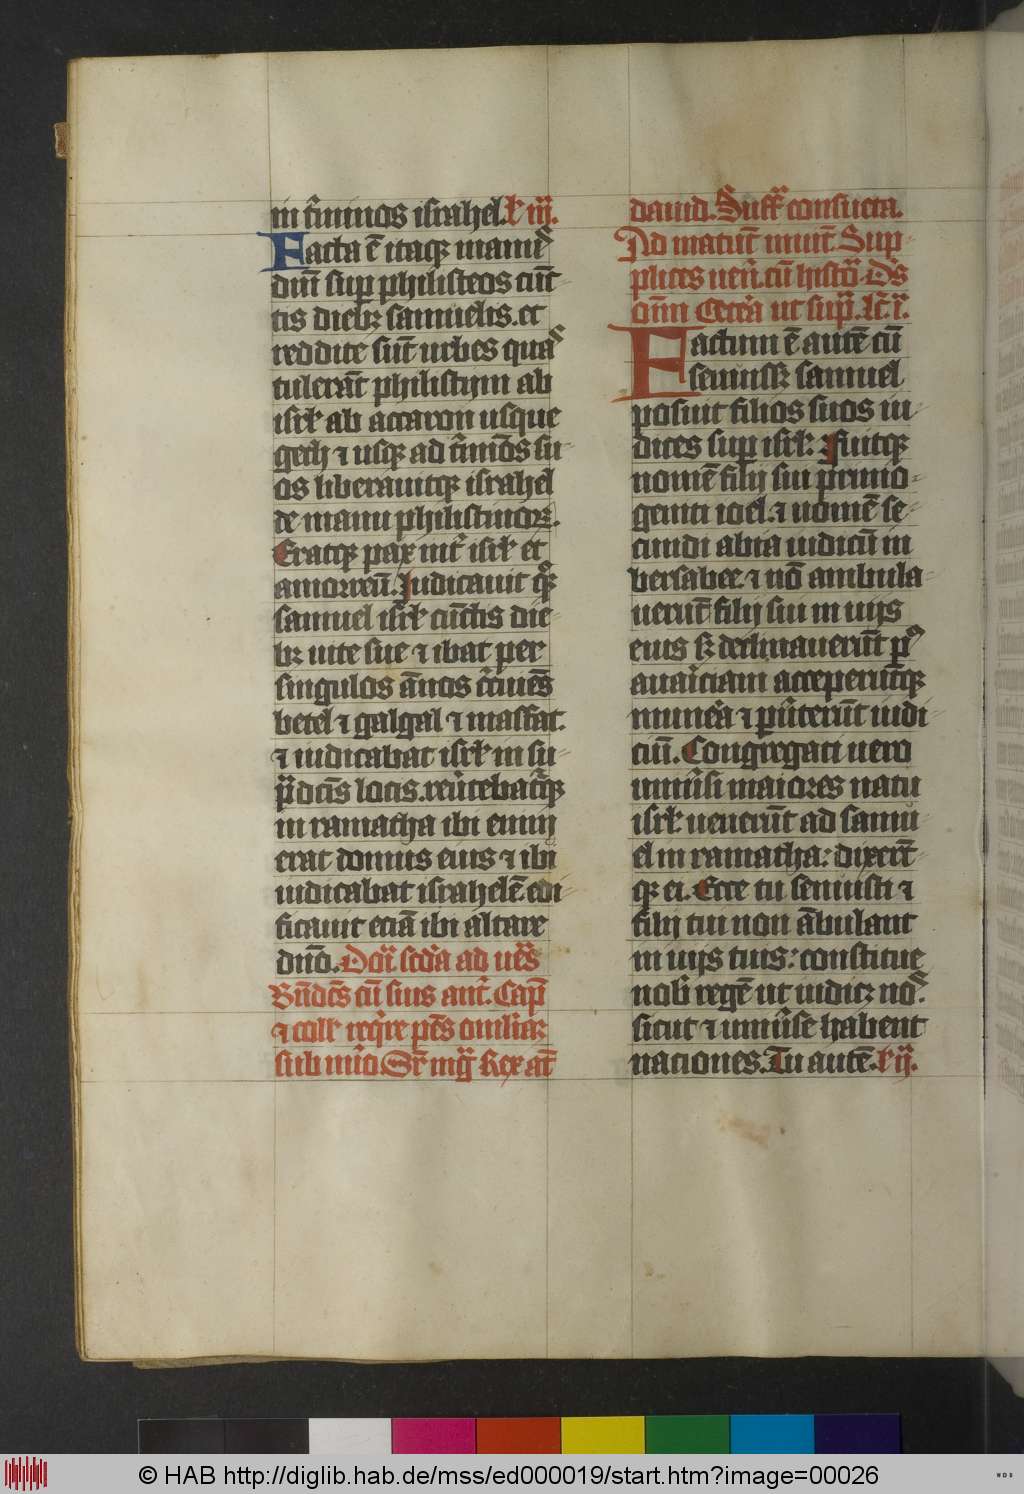 in t̄minos israhel. l iij.
Facta ē itaq; manus
dn̄i sup philisteos cūc
tis dieb; samuelis. et
reddite sūt urbes quas
tulerāt philistijm ab
isrł ab accaron usque
geth ⁊ usq; ad t̄mīos su
os liberauitq; israhel
de manu philistinoꝝ.
Eratq; pax int̄ isrł et
amorreū. Judicauit qͦ;
samuel isrł cūctis die
b; uite sue ⁊ ibat per
singulos ānos c̄cuiēs
betel ⁊ galgal ⁊ masfat.
⁊ iudicabat isrł in su
p̄dc̄is locis. reūtebat̄q;
in ramatha ibi enim
erat domus eius ⁊ ibi
iudicabat israhelē. edi
ficauit eciā ibi altare
dn̄o. ad ūes
cū suis ant̄. Cap̄
⁊ coll
sub Rex
dauid. Suff̄ consueta.
Ad matut̄ inuit̄. Sup
plices uen̄. cū histō. Ds̄
om̄i Cet̄a ut sup̄. lc̄. i.
Factum ē autē cū
senuiss; samuel
posuit filios suos iu
dices sup isrł: fuitq;
nomē filij sui primo
geniti ioel. ⁊ nomē se
cundi abia iudicū in
bersabee. ⁊ nō ambula
uerūt filij sui in uijs
eius s; declinauerūt pͦ
auariciam acceperūtq;
mun̄a ⁊ p̄uterūt iudi
ciū. Congregati uero
uniūsi maiores natu
isrł uenerūt ad samu
el in ramatha: dixert̄
q; ei. Ecce tu senuisti ⁊
filij tui non ābulant
in uijs tuis: constitue
nob̄ regē ut iudic; nos.
sicut ⁊ uniūse habent
naciones. Tu autē. l ij.
© HAB http://diglib.hab.de/mss/ed000019/start.htm?image=00026